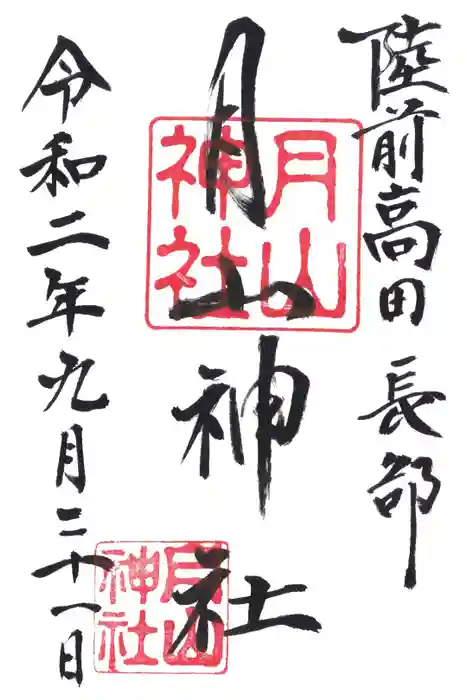 陸前高田 長部
月山神社
月山神社
月山神社
令和二年九月二十一日